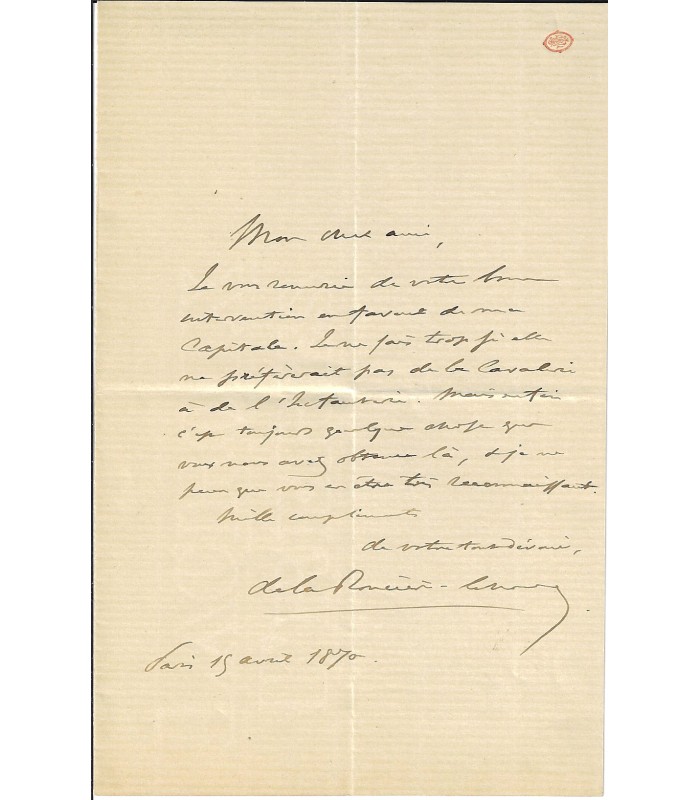 Mon cher ami,
Je vous remercie de votre bonne
intervention en faveur de ma
Capitale. Je ne sais trop si elle
ne préférerait pas de la Cavalerie
à de l'Infanterie. Mais enfin
c'est toujours quelque chose que
vous nous avez obtenu là, & je ne
peux que vous en être très reconnaissant.
Mille compliments
de votre tout dévoué,
de la Roncière-Le Noury
Paris 15 avril 1870.